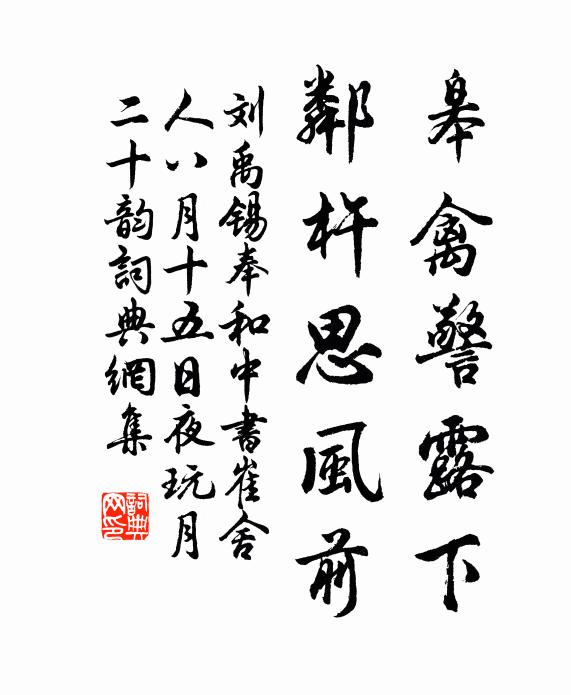 皋禽警露下
鄰杵思風前
刘禹锡奉和中書崔舍
人八月十五日夜玩月
二十韵詞典網集
詞典
网印